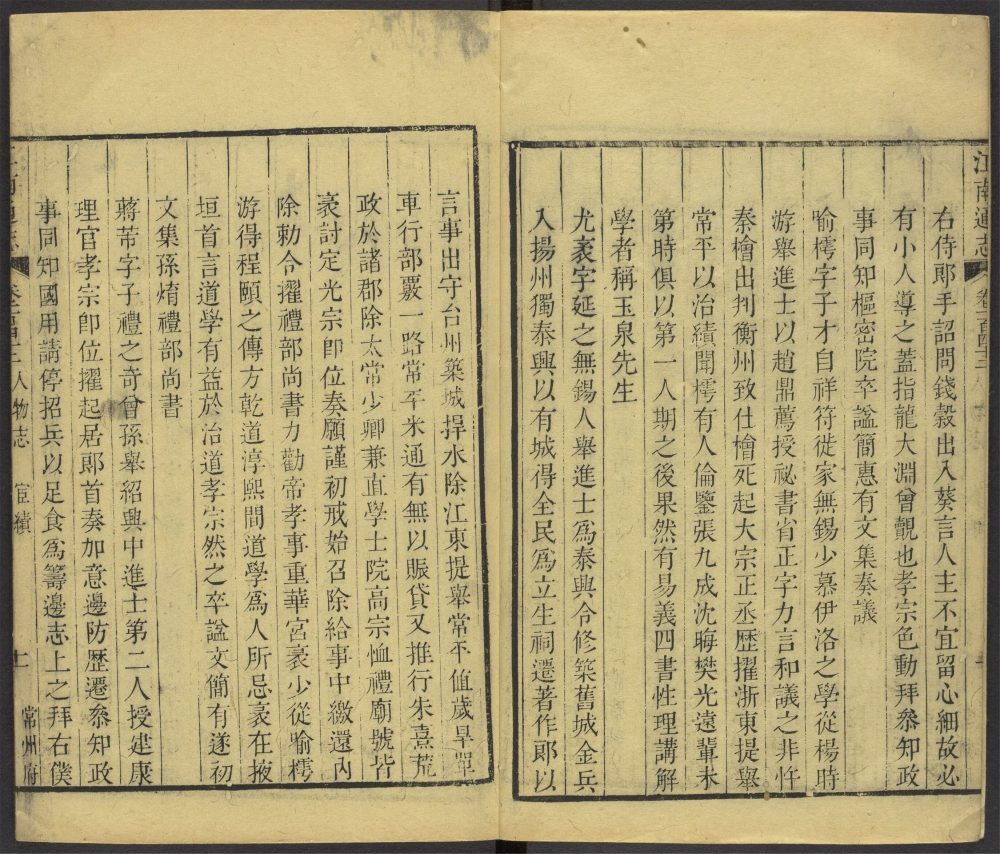 江南通志
右侍郎手詔問錢穀出入葵言人主不宜留心細故必
有小人導之蓋指龍大淵曾覿也孝宗色動拜叅知政
事同知樞密院卒謚簡惠有文集奏議
喻樗字子才自祥符徙家無錫少慕伊洛之學從楊時
游舉進士以趙鼎薦授祕書省正字力言和議之非忤
秦檜出判衡州致仕檜死起大宗正丞歷擢浙東提舉
常平以治績聞樗有人倫鑒張九成沈晦樊光遠輩未
第時俱以第一人期之後果然有易義四書性理講解
學者稱玉泉先生
尤袤字延之無錫人舉進士爲泰興令修築舊城金兵
入揚州獨泰興以有城得全民爲立生祠遷著作郎以
言事出守台州築城捍水除江東提舉常平値歲旱單
車行部覈一路常平米通有無以賑貸又推行朱熹荒
政於諸郡除太常少卿兼直學士院高宗恤禮廟號皆
袤討定光宗卽位奏願謹初戒始召除給事中繳還內
除勅令擢禮部尚書力勸帝孝事重華宮袤少從喻樗
游得程頤之傳方乾道淳熙間道學爲人所忌袤在掖
垣首言道學有益於治道孝宗然之卒謚文簡有遂初
文集孫焴禮部尚書
蔣芾字子禮之奇曾孫舉紹興中進士第二人授建康
理官孝宗卽位擢起居郎首奏加意邊防歷遷叅知政
事同知國用請停招兵以足食爲籌邊志上之拜右僕
人物志 宦績 十一 常州府